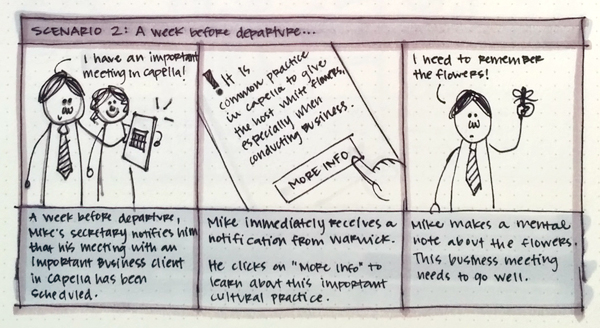 SCENARIO 2: A week before departure...
I have an important
meeting in Capella!
! It is
common practice
in Capella to give
the host white flowers,
especially when
conducting business.
MORE INFO
I need to remember
the flowers!
A week before departure,
Mike's secretary notifies him
that his meeting with an
important business client
in Capella has been
scheduled.
Mike immediately receives a
notification from Warwick.
He clicks on "More Info" to
learn about this important
cultural practice.
Mike makes a mental
note about the flowers.
This business meeting
needs to go well.